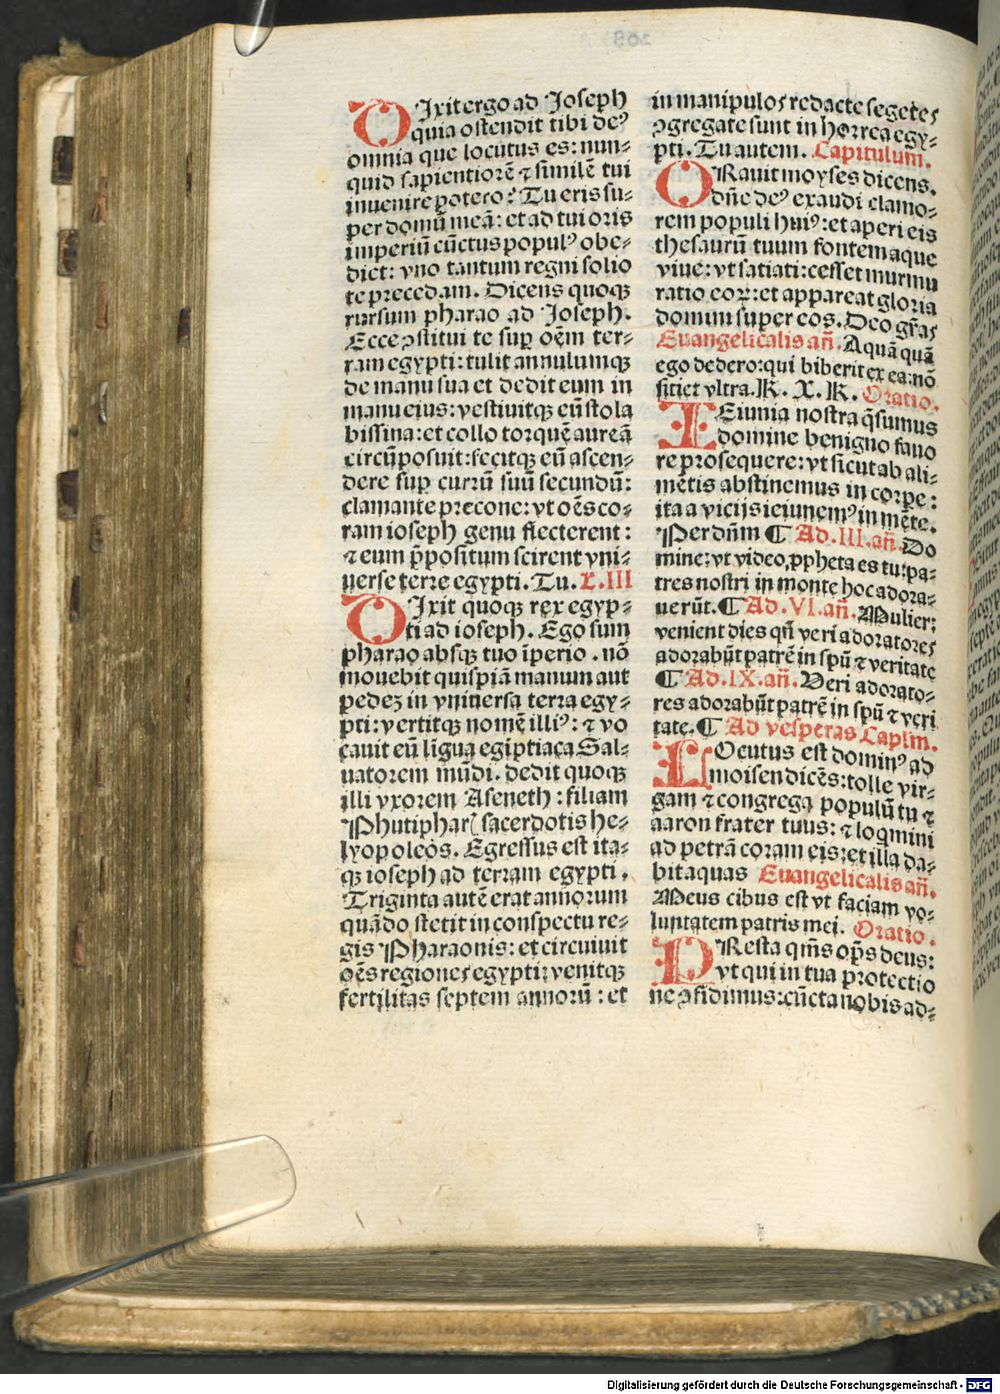 DIxit ergo ad Joseph
quia ostendit tibi deꝰ
omnia que locutus es: nun⸗
quid sapientiorē ⁊ similē tui
inuenire potero? Tu eris su⸗
per domū meā: et ad tui oris
imperiū cūctus populꝰ obe⸗
diet: vno tantum regni solio
te precedam. Dicens quoqꝫ
rursum pharao ad Joseph.
Ecce ꝯstitui te suꝑ oēm ter⸗
ram egypti: tulit annulumqꝫ
de manu sua et dedit eum in
manu eius: vestiuitqꝫ eū stola
bissina: et collo torquē aureā
circūposuit: fecitqꝫ eū ascen⸗
dere suꝑ currū suū secundū:
clamante precone: vt oēs co⸗
ram ioseph genu flecterent:
⁊ eum p̄positum scirent vni⸗
uerse terre egypti. Tu. L.III
DIxit quoqꝫ rex egyp⸗
ti ad ioseph. Ego sum
pharao absqꝫ tuo īperio. nō
mouebit quispiā manum aut
pedeꝫ in vniuersa terra egy⸗
pti: vertitqꝫ nomē illiꝰ: ⁊ vo
cauit eū līgua egiptiaca Sal⸗
uatorem mūdi. dedit quoqꝫ
illi vxorem Aseneth: filiam
Phutipharꝭ sacerdotis he⸗
lyopoleos. Egressus est ita⸗
qꝫ ioseph ad terram egypti.
Triginta autē erat annorum
quādo stetit in conspectu re⸗
gis Pharaonis: et circuiuit
oēs regiones egypti: venitqꝫ
fertilitas septem annorū: et
in manipulos redacte segetes
ꝯgregate sunt in horrea egy⸗
pti. Tu autem. Capitulum.
ORauit moyses dicens.
dn̄e deꝰ exaudi clamo⸗
rem populi huiꝰ: et aperi eis
thesaurū tuum fontem aque
viue: vt satiati: cesset murmu
ratio eoꝝ: et appareat gloria
domini super eos. Deo gr̄as
Euangelicalis an̄. Aquā quā
ego dedero: qui biberit ex ea: nō
sitiet vltra. K. X. K. Oratio.
IEiunia nostra q̄sumus
domine benigno fauo
re prosequere: vt sicut ab ali⸗
mētis abstinemus in corꝑe:
ita a vicijs ieiunemꝰ in mēte.
Per dn̄m ¶ Ad. III. an̄. Do
mine: vt video, ꝓpheta es tu: pa⸗
tres nostri in monte hoc adora⸗
uerūt. ¶ Ad. VI. an̄. Mulier:
venient dies qn̄ veri adoratores
adorabūt patrē in spū ⁊ veritate
¶ Ad. IX. an̄. Veri adorato⸗
res adorabūt patrē in spū ⁊ veri
tate. ¶ Ad vesperas Caplm̄.
LOcutus est dominꝰ ad
moisen dicēs: tolle vir⸗
gam ⁊ congrega populū tu ⁊
aaron frater tuus: ⁊ loqmini
ad petrā coram eis: et illa da⸗
bit aquas Euangelicalis an̄.
Meus cibus est vt faciam vo⸗
luntatem patris mei. Oratio.
PResta qm̄s oꝑs deus:
vt qui in tua protectio
ne ꝯfidimus: cūcta nobis ad⸗
Digitalisierung gefördert durch die Deutsche Forschungsgemeinschaft - DFG